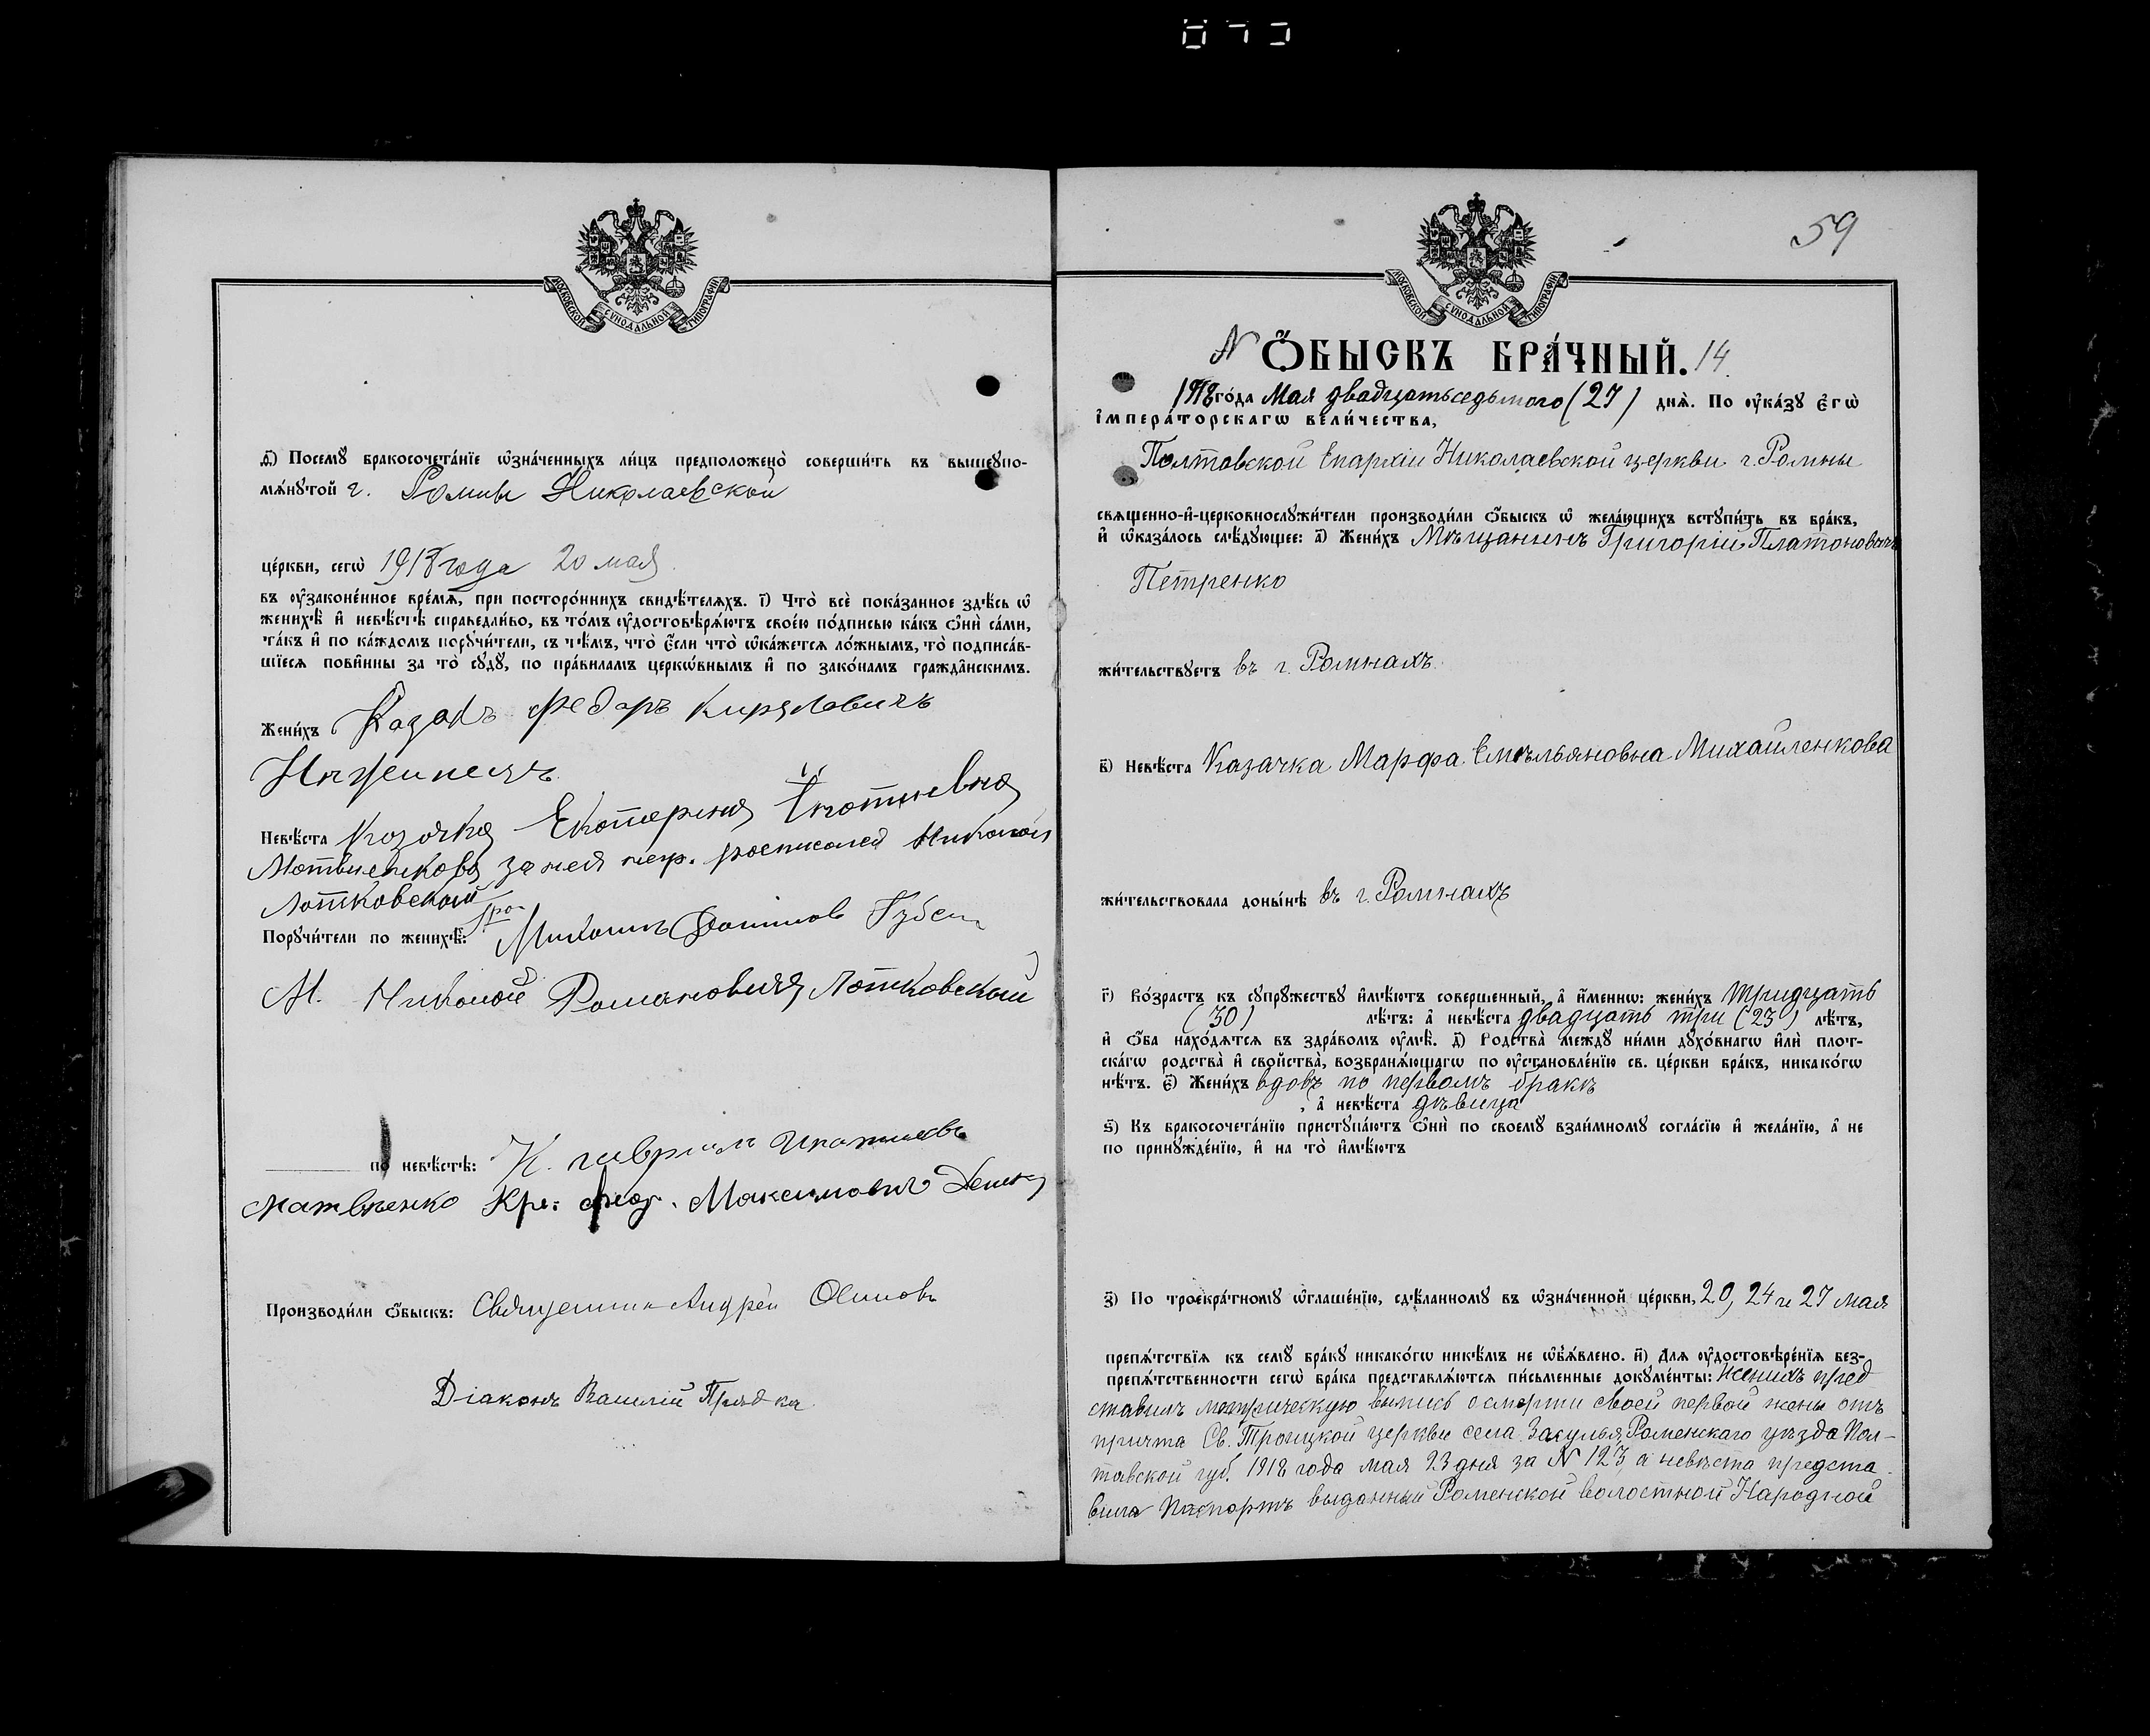 МОСКОВСКОЙ СУНОДАЛЬНОЙ ТИПОГРАФИИ
д҃) Посемꙋ̀ бракосочета́нїе ѡ҆зна́ченныхъ ли́цъ предположено̀ соверши́ть въ вышеꙋпо-
мѧ́нꙋтой г. Ромны Николаевской
це́ркви, сегѡ̀ 1918 года 20 мая
въ ᲂу҆законе́нное вре́мѧ, при посторо́ннихъ свидѣ́телѧхъ. і҃) Что̀ всѐ пока́занное здѣ́сь ѡ҆
женихѣ̀ и҆ невѣ́стѣ справедли́во, въ то́мъ ᲂу҆достовѣрѧ́ютъ свое́ю по́дписью ка́къ ѻ҆нѝ са́ми,
та́къ и҆ по ка́ждомъ порꙋчи́тели, съ тѣ́мъ, что̀ є҆́сли что̀ ѡ҆ка́жетсѧ ло́жнымъ, то̀ подписа́в-
шїесѧ пови́нны за то̀ сꙋдꙋ̀, по пра́виламъ церко́внымъ и҆ по зако́намъ гражда́нскимъ.
Жени́хъ Казакъ Федаръ Кирилович
Невѣ́ста Козачка Екатерина Игнатиевна
за нея негр. росписался Николай
Лотковский
Порꙋчи́тели по женихѣ̀:
М. Николай Романович Лотковский
по невѣ́стѣ: К. гаврил Игнатиевъ
Матвѣенко Кре: Максимович
Производи́ли ѻ҆́быскъ: Священник Андрей Осипов
Дiаконъ Василiй Прядка
59
МОСКОВСКОЙ СУНОДАЛЬНОЙ ТИПОГРАФИИ
N Ѻ҆́БЫСКЪ БРА́ЧНЫЙ. 14
1918 го́да Мая двадцатьседьмого (27) днѧ̀. По ᲂу҆ка́зꙋ Є҆гѡ̀
І҆мпера́торскагѡ вели́чества,
Полтавской Епархiи Николаевской церкви г. Ромны
свѧщенно-и҆-церковнослꙋжи́тели производи́ли ѻ҆́быскъ ѡ҆ жела́ющихъ встꙋпи́ть въ бра́къ,
и҆ ѡ҆каза́лось слѣ́дꙋющее: а҃) Жени́хъ Мѣщанинъ Григорiй Платоновичъ
Петренко
жи́тельствꙋетъ въ г. Ромнахъ
в҃) Невѣ́ста Казачка Марфа Емѣльяновна Михайленкова
жи́тельствовала доны́нѣ въ г. Ромнахъ
г҃) Во́зрастъ къ сꙋпрꙋ́жествꙋ и҆мѣ́ютъ соверше́нный, а҆ и҆́меннѡ: жени́хъ тридцать
(30) лѣ́тъ: а҆ невѣ́ста двадцать три (23) лѣ́тъ,
и҆ ѻ҆́ба нахо́дѧтсѧ въ здра́вомъ ᲂу҆мѣ̀. д҃) Родства̀ междꙋ̀ ни́ми дꙋхо́внагѡ и҆лѝ плот-
ска́гѡ родства̀ и҆ сво́йства, возбранѧ́ющагѡ по ᲂу҆становле́нїю св. це́ркви бра́къ, никако́гѡ
нѣ́тъ. є҃) Жени́хъ вдовъ по первомъ бракѣ
, а҆ невѣ́ста дѣвица
ѕ҃) Къ бракосочета́нїю пристꙋпа́ютъ ѻ҆нѝ по своемꙋ̀ взаи́мномꙋ согла́сїю и҆ жела́нїю, а҆ не
по принꙋжде́нїю, и҆ на то̀ и҆мѣ́ютъ
з҃) По троекра́тномꙋ ѡ҆глаше́нїю, сдѣ́ланномꙋ въ ѡ҆зна́ченной це́ркви, 20, 24 и 27 мая
препѧ́тствїѧ къ семꙋ̀ бра́кꙋ никако́гѡ никѣ́мъ не ѡ҆б̾ѧ́влено. и҃) Длѧ ᲂу҆достовѣре́нїѧ без-
препѧ́тственности сегѡ̀ бра́ка представлѧ́ютсѧ пи́сьменные докꙋме́нты: Женихъ пред
ставилъ метрическую выпись о смерти своей первой жены отъ
причта Св. Троицкой церкви села Засулья, Роменскаго уѣзда Пол-
тавской губ. 1918 года мая 23 дня за N 123, а невѣста предста-
вила паспортъ выданный Роменской волостной Народной